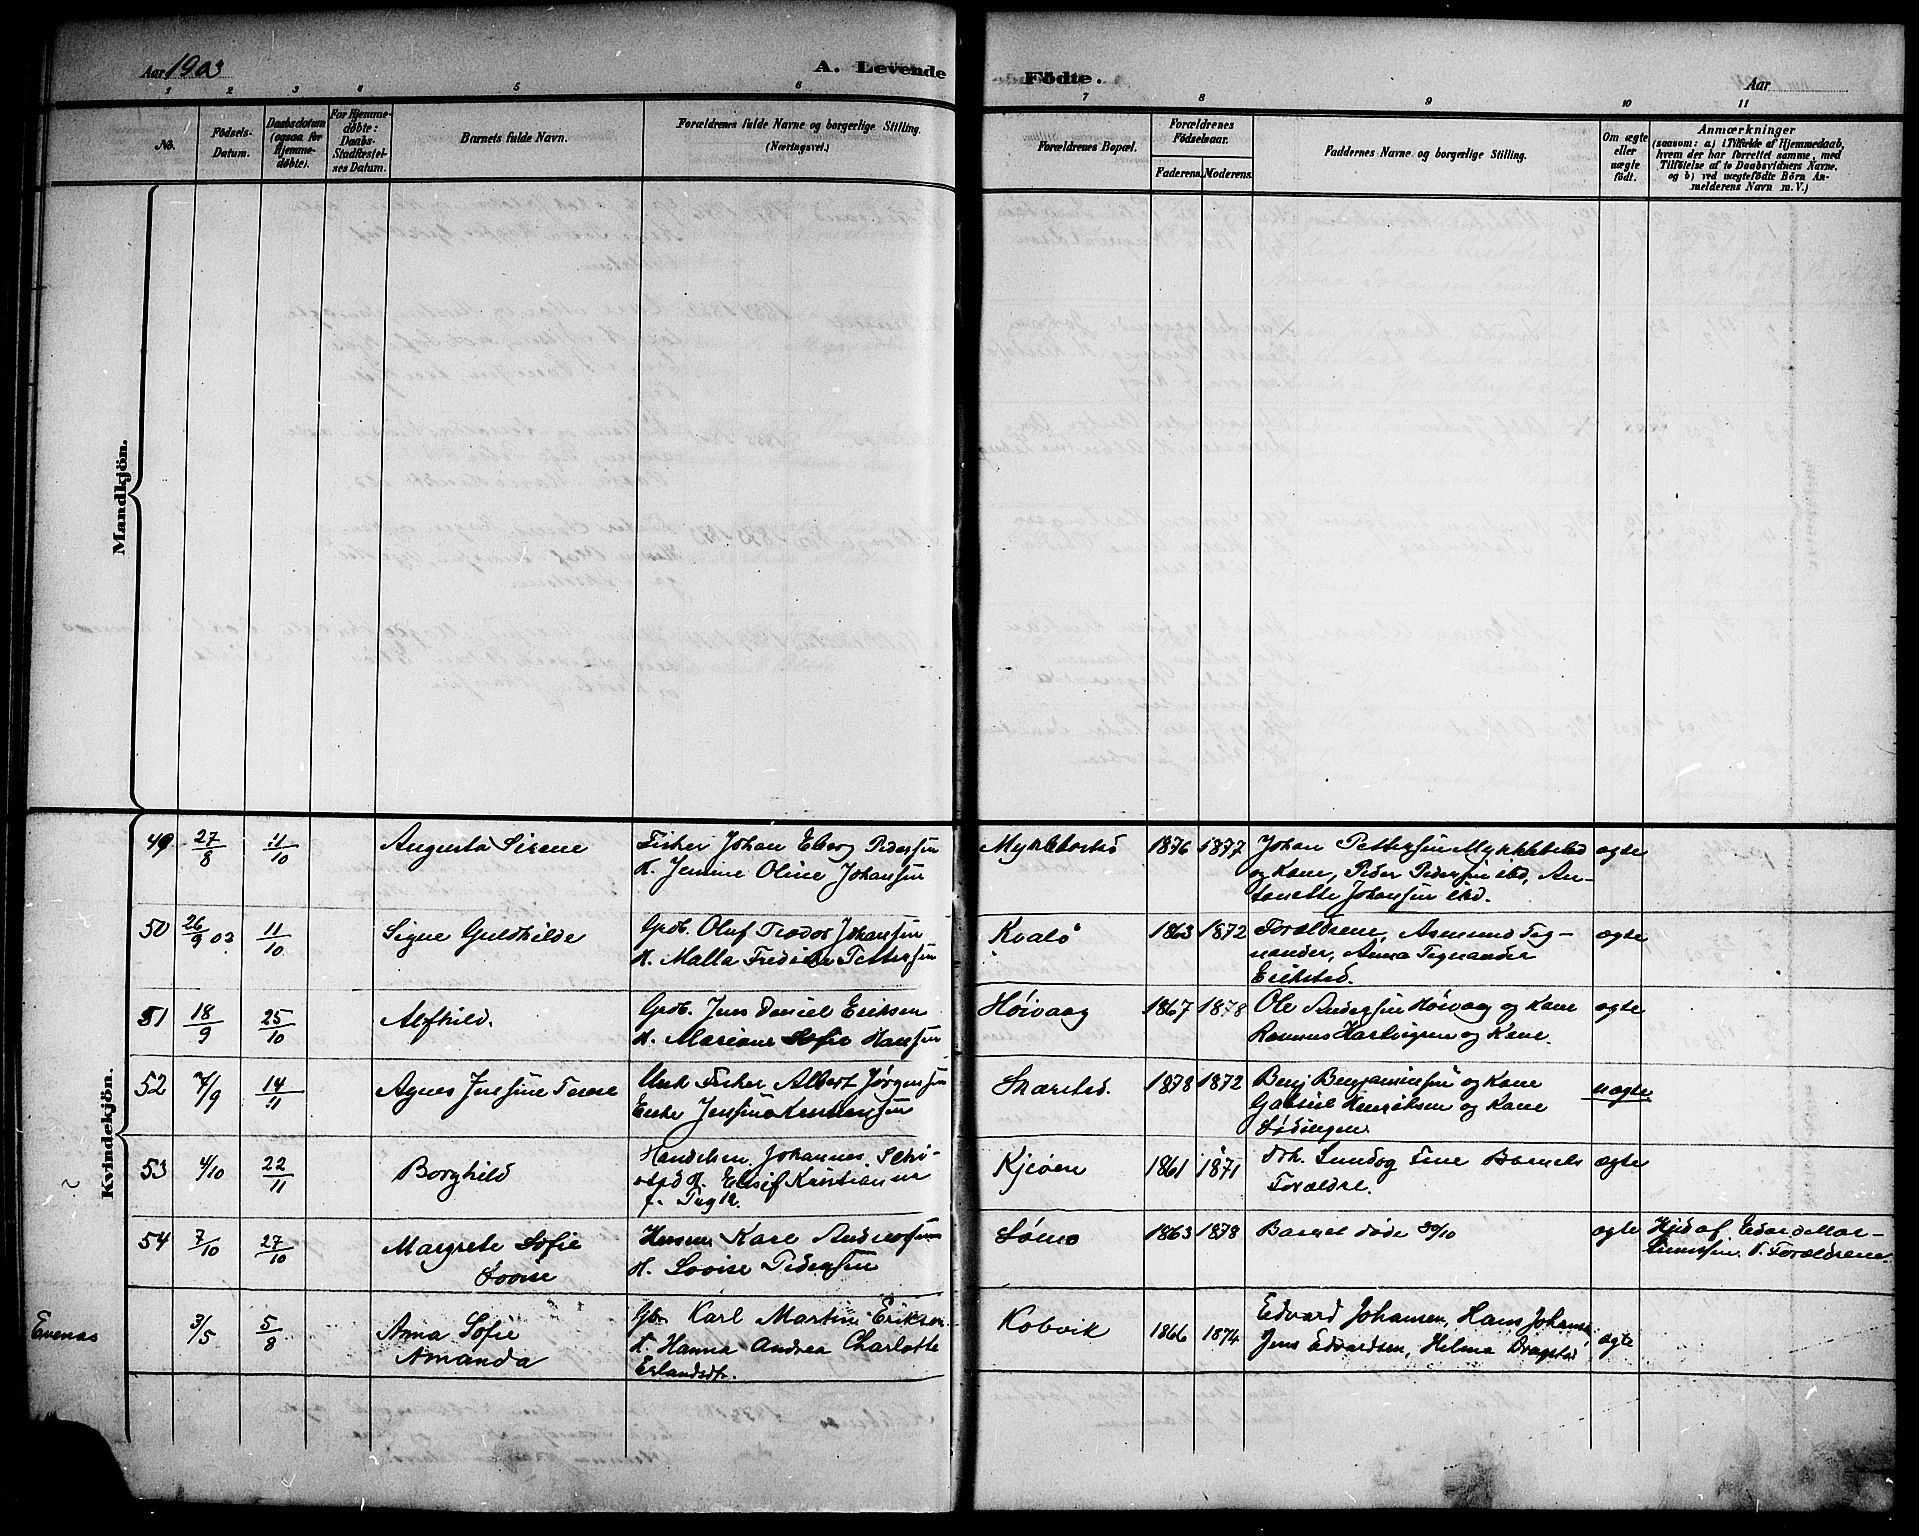 Aar 1903
A. Levende
Födte.
Aar
1 2 3 4 5 6 7 8 9 10 11
No.
Födsels-
Datum.
Daabsdatum
(ogsaa for
Hjemme-
döbte).
For Hjemme-
døbte:
Daabs-
Stadfæstel-
ses Datum.
Barnets fulde Navn.
Forældrenes fulde Navne og borgerlige Stilling.
(Næringsvei.)
Forældrenes Bopæl.
Forældrenes
Födselsaar.
Faderens. Moderens.
Faddernes Navne og borgerlige Stilling.
Om ægte
eller
uægte
födt.
Anmærkninger
(saasom: a) i Tilfælde af Hjemmedaab,
hvem der har forrettet samme, med
Tilföielse af to Daabsvidners Navne,
og b) ved uægtefödte Börn An-
melderens Navn m. V.)
Mandkjön.
Kvindekjön.
49 27/8 11/10 Augusta Sirene
Fisker Johan Elberg Pedersen
H. Jensine Oline Johansen
Myklebostad 1876 1877
Johan Pettersen Myklebostad
og Kone, Peder Pedersen ibd, An-
tonette Johansen ibd.
ægte
50 26/9 03 11/10 Signe Guldhilde
Gpdb. Oluf Teodor Johansen
H. Malla Fredrikke Pettersen
Kvalö 1863 1872
Forældrene, Asmund Teg-
nander, Anna Tegnander
Erikstad.
ægte
51 18/9 25/10 Alfhild.
Gpdb. Jens Daniel Eriksen
H. Mariane Sofie Hansen
Høivaag 1867 1878
Ole Andersen Høivaag og Kone
Rasmus Hartvigsen og Kone.
ægte
52 7/9 14/11 Agnes Jensine Terese
Unk Fisker Albert Jørgensen
Enke Jensine
Skarstad. 1878 1872
Benj Benjaminsen og Kone
Gabriel Henriksen og Kone
Lødingen.
uægte
53 4/10 22/11 Borghild
Handelsm. Johannes
H. Elisif Kristianne
Kjeøen 1861 1871
Barnets
Forældre.
ægte
54 7/10 27/10 Margrete Sofie
Lovise
Husm Kare Andreassen
H. Lovise Pedersen
Sømo 1863 1878
Barnet døde 30/10
ægte
Hjd af Edard Mor-
tensen. T. Forældrene.
Evenæs
3/5 5/8 Anna Sofie
Amanda
Gb. Karl Martin Eriksen
H. Hanna Andrea Charlotte
Erlandsdtr.
Kobvik 1866 1874
Edvard Johansen, Hans Johansen,
Jens Edvardsen, Helma Dragstad
ægte